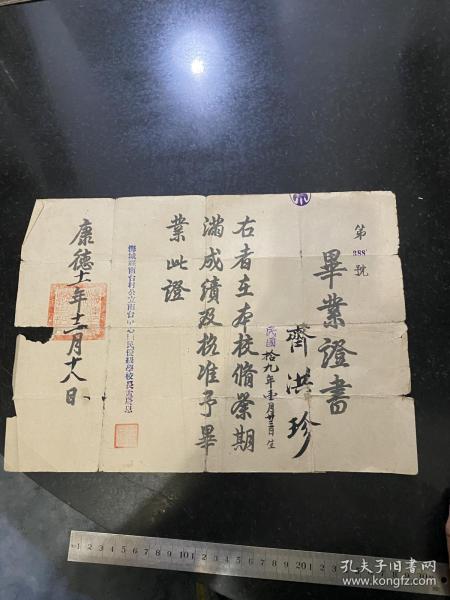 第 388 號
畢業證書
齊洪珍
民國拾九年壹月廿三日生
右者在本校脩業期
滿成績及格准予畢
業此證
海城縣南台村公立南台中心國民優級學校長
康德十一年十二月十八日
孔夫子旧书网
www.kongfz.com